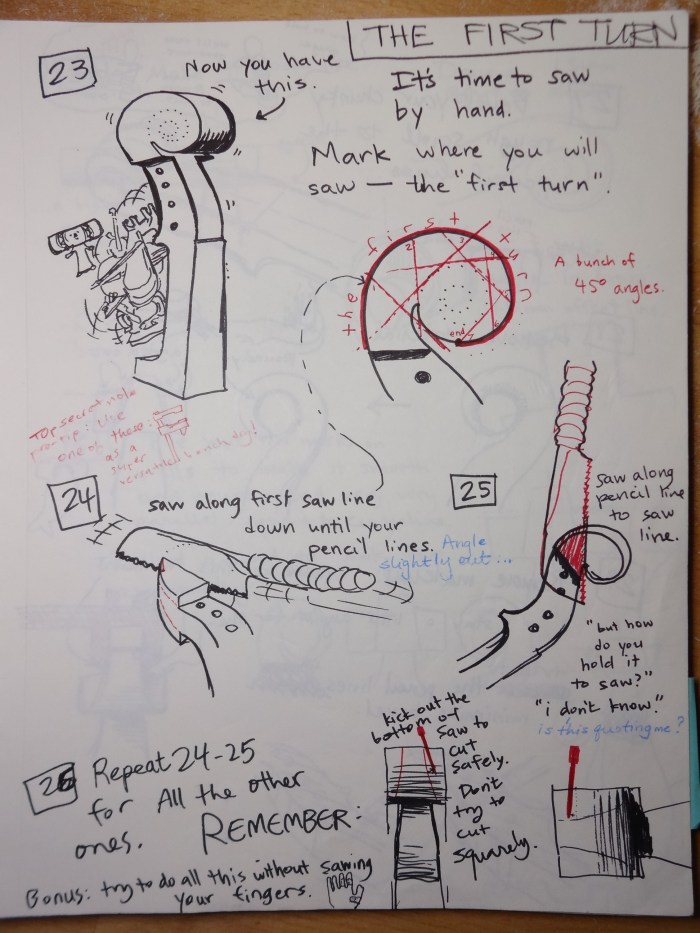 THE FIRST TURN
23
Now you have
this.
It's time to saw
by hand.
Mark where you will
saw — the "first turn".
the first turn
end
A bunch of
45° angles.
Top secret note
pro tip: Use
one of these:
as a
super
versatile bench dog!
24
saw along first saw line
down until your
pencil lines. Angle
slightly out...
25
saw along
pencil line
to saw
line.
"but how
do you
hold it
to saw?"
"i don't know."
is this quoting me?
26
Repeat 24-25
for All the other
ones. REMEMBER:
Bonus: try to do all this without sawing
your fingers.
kick out the
bottom of
saw to
cut
safely.
Don't
try to
cut
squarely.